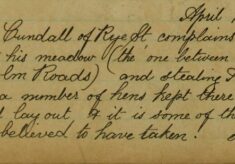 April
Cundall of Rye St. complains
his meadow (the one between
lm Roads) and stealing
a number of hens kept there
lay out & it is some of th
believed to have taken.